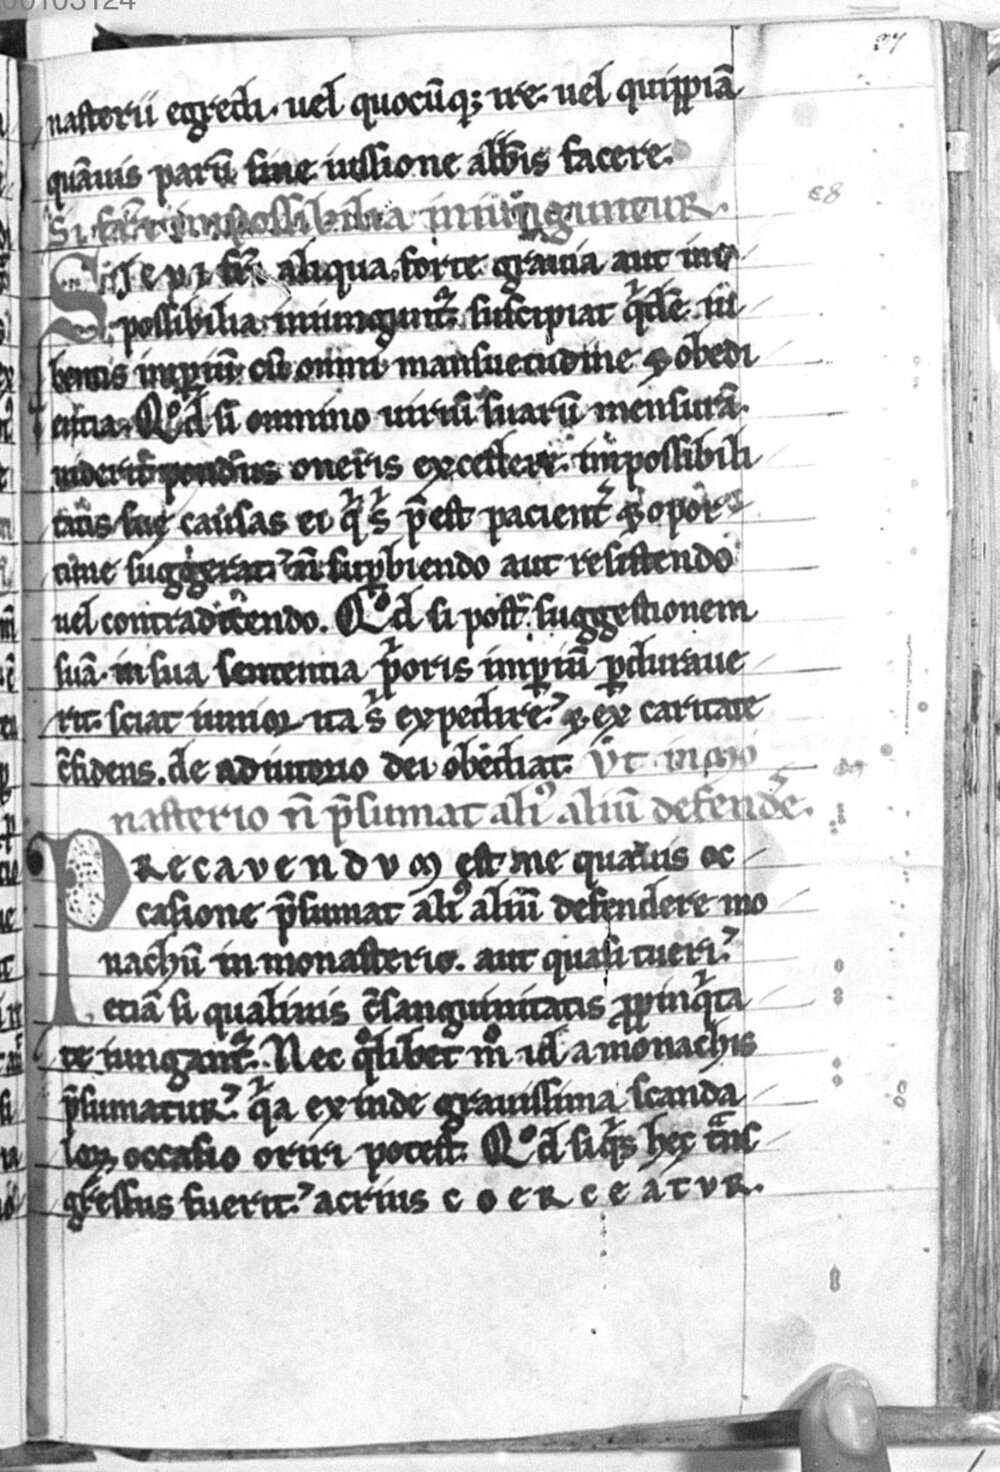 00103124
37
nasterii egredi. uel quocūq; ire. uel quippiā
quāuis parū sine iussione abb̄is facere.
Si fr̄i inpossibilia iniunguntur. 68
Si cui fr̄i aliqua forte grauia aut im
possibilia iniungunt᷑. suscipiat qͥdē iu
bentis imꝑiū cū omni mansuetudine ⁊ obedi
entia. Qd̊ si omnino uiriū suarū mensurā
uiderit pondus oneris excedere. impossibili
tatis suę causas ei qͥ sͥ p̄est pacient᷑ ⁊ opor
tune suggerat. n̄ suꝑbiendo aut resistendo
uel contradicendo. Qd̊ si post suggestionem
suā. in sua sententia p̄oris imꝑiū ꝑduraue
rit. sciat iunior ita sͥ expedire. ⁊ ex caritate
c̄fidens. de adiutorio dei obediat. Vt in mo 69
nasterio n̄ p̄sumat ali᷒ aliū defendē.
Precavendum est ne quauis oc
casione p̄sumat ali᷒ aliū defendere mo
nachū in monasterio. aut quasi tueri.
etiā si qualiuis c̄sanguinitatis ꝓpinqͥta
te iungant᷑. Nec qͦlibet mͦ id a monachis
p̄sumatur. qͥa exinde grauissima scanda
loꝝ occasio oriri potest. Qd̊ si qͥs hec tͣns
gressus fuerit. acrius coerceatur.